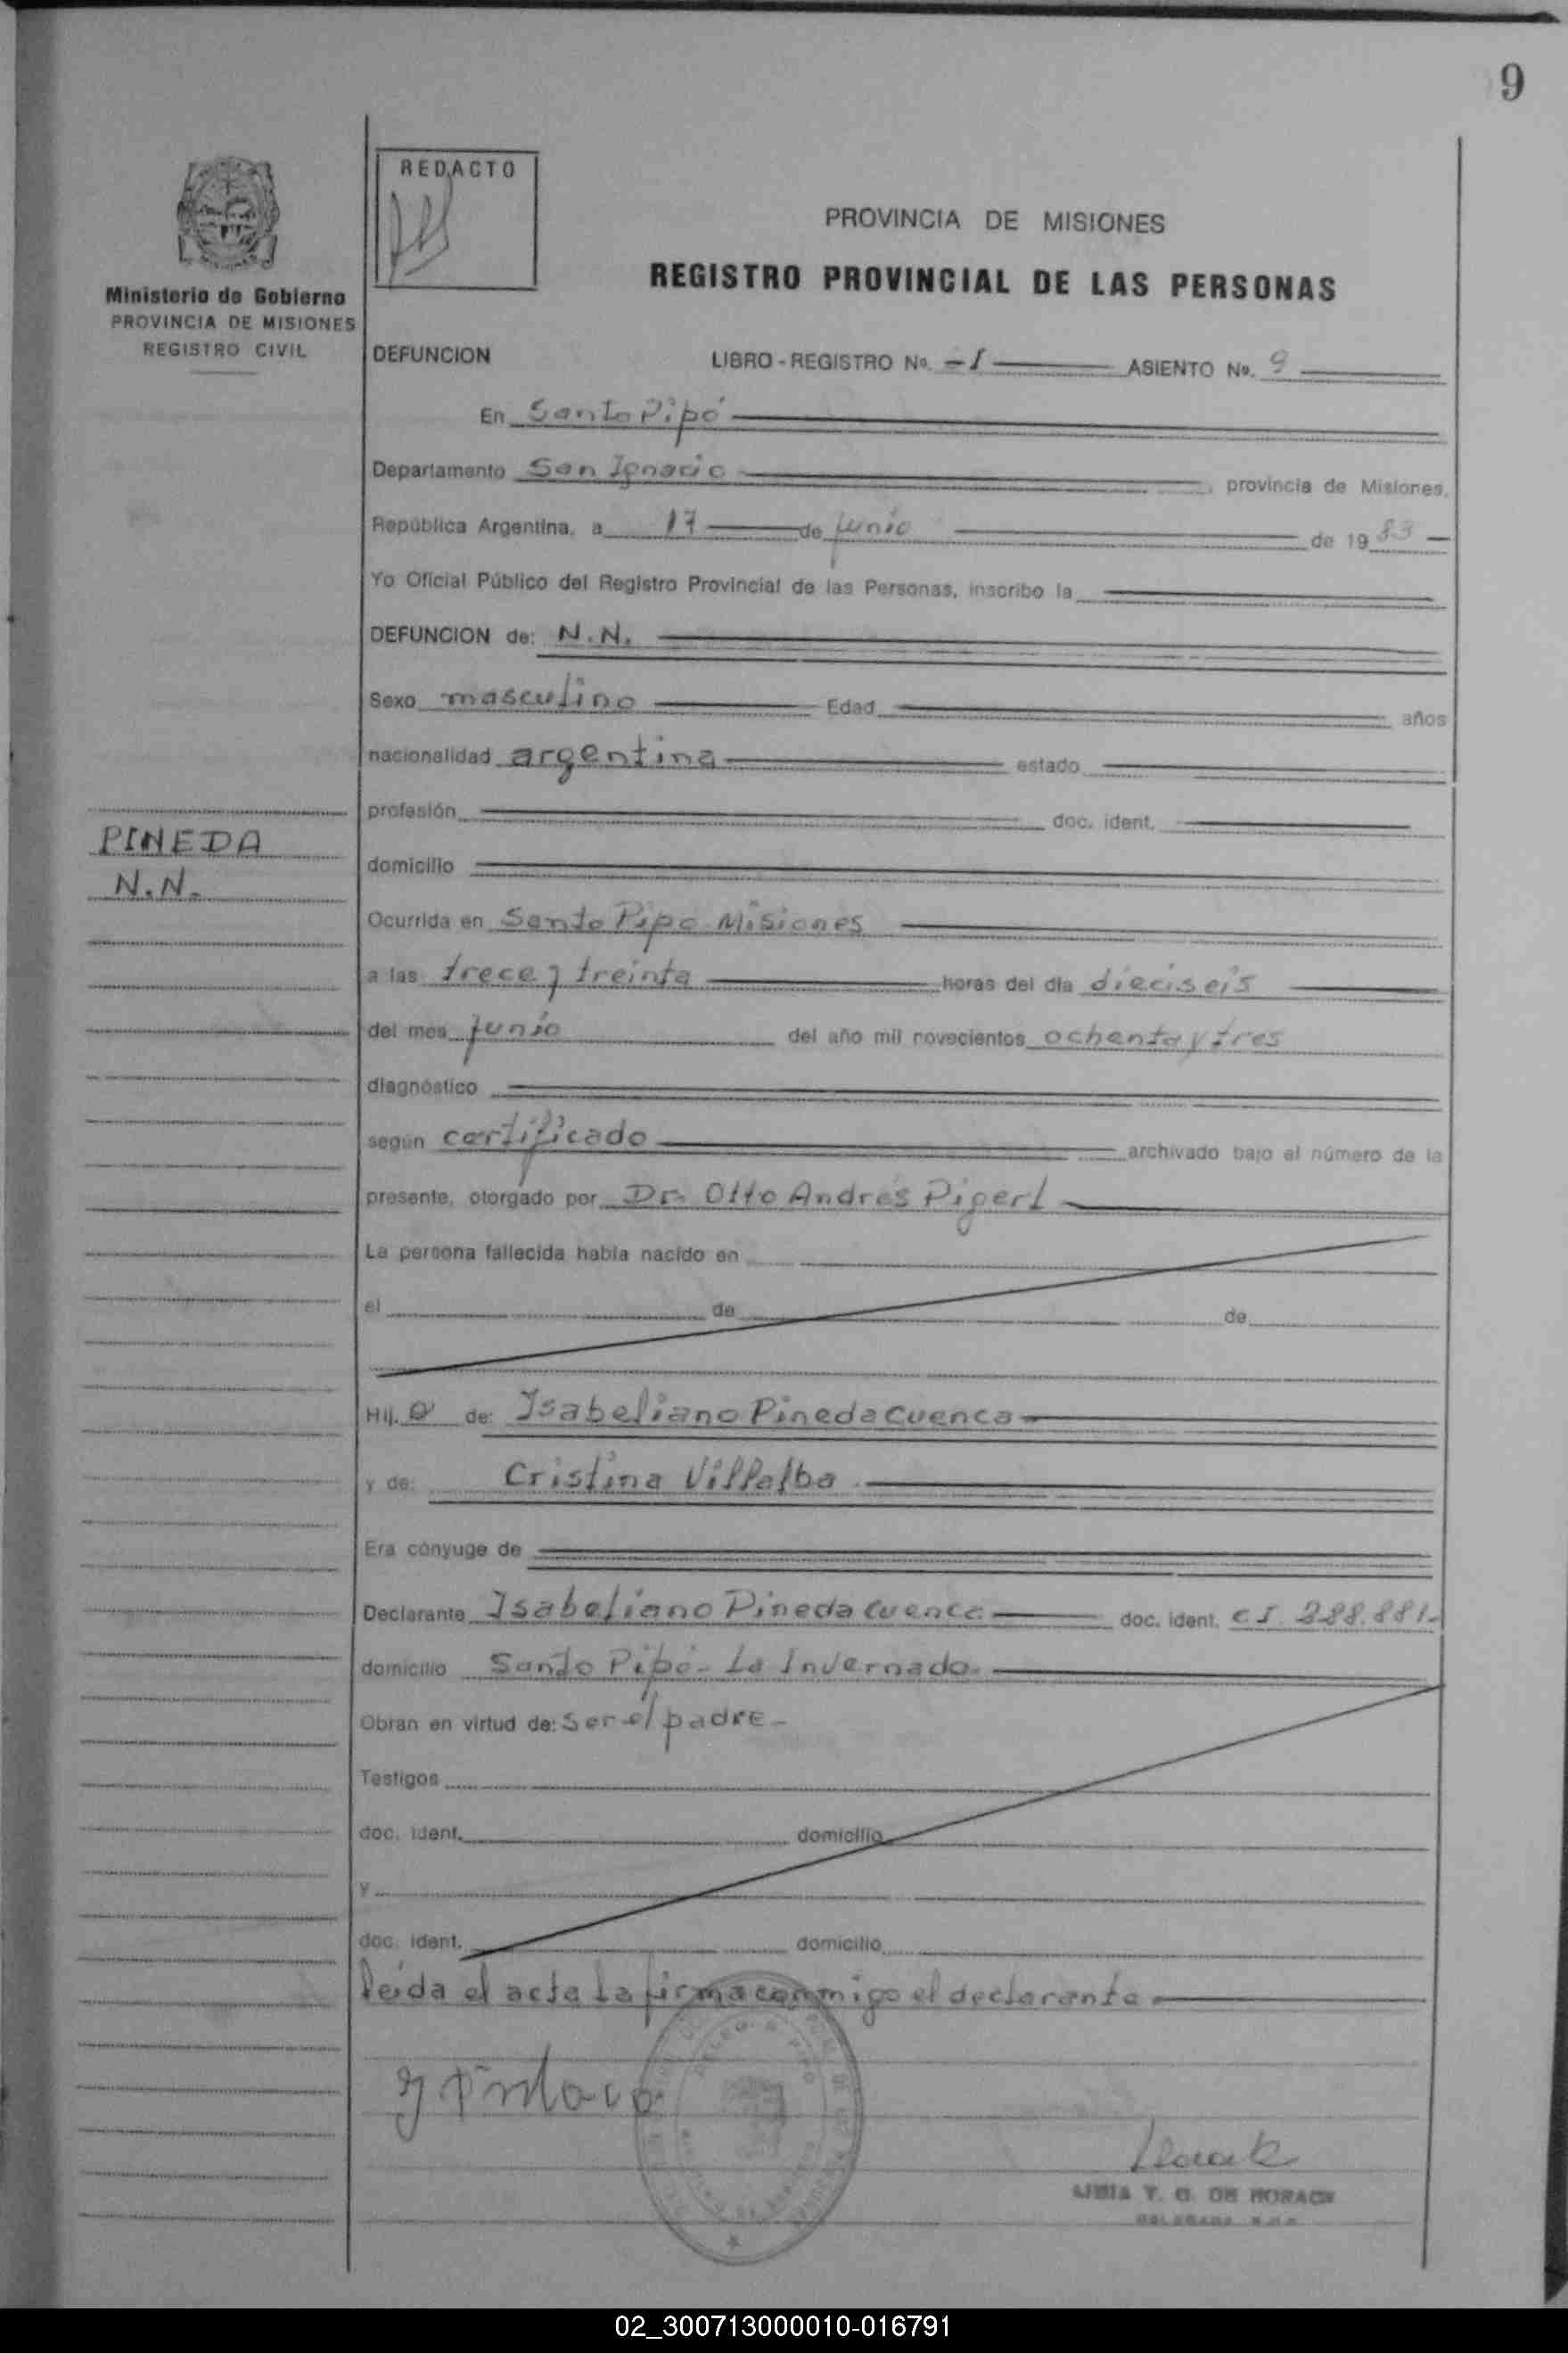 9
REDACTO
PROVINCIA DE MISIONES
REGISTRO PROVINCIAL DE LAS PERSONAS
Ministerio de Gobierno
PROVINCIA DE MISIONES
REGISTRO CIVIL
DEFUNCION LIBRO - REGISTRO No. -1 ASIENTO No. 9
En Santo Pipó
Departamento San Ignacio, provincia de Misiones,
República Argentina, a 17 de junio de 19 83
Yo Oficial Público del Registro Provincial de las Personas, inscribo la
DEFUNCION de: N.N.
Sexo masculino Edad años
nacionalidad argentina estado
profesión doc. ident.
PINEDA
N.N.
domicilio
Ocurrida en Santo Pipo Misiones
a las trece y treinta horas del día dieciseis
del mes junio del año mil novecientos ochenta y tres
diagnóstico
según certificado archivado bajo el número de la
presente, otorgado por Dr. Otto Andrés Pigerl
La persona fallecida había nacido en
el de de
Hij. o de: Isabeliano Pineda Cuenca
y de: Cristina Villalba
Era cónyuge de
Declarante Isabeliano Pineda Cuenca doc. ident. C I. 288.881-
domicilio Santo Pipó - La Invernada
Obran en virtud de: ser el padre -
Testigos
doc. ident. domicilio
y
doc. ident. domicilio
leída el acta la firma conmigo el declarante
T. G. DE HORACK
02_300713000010-016791